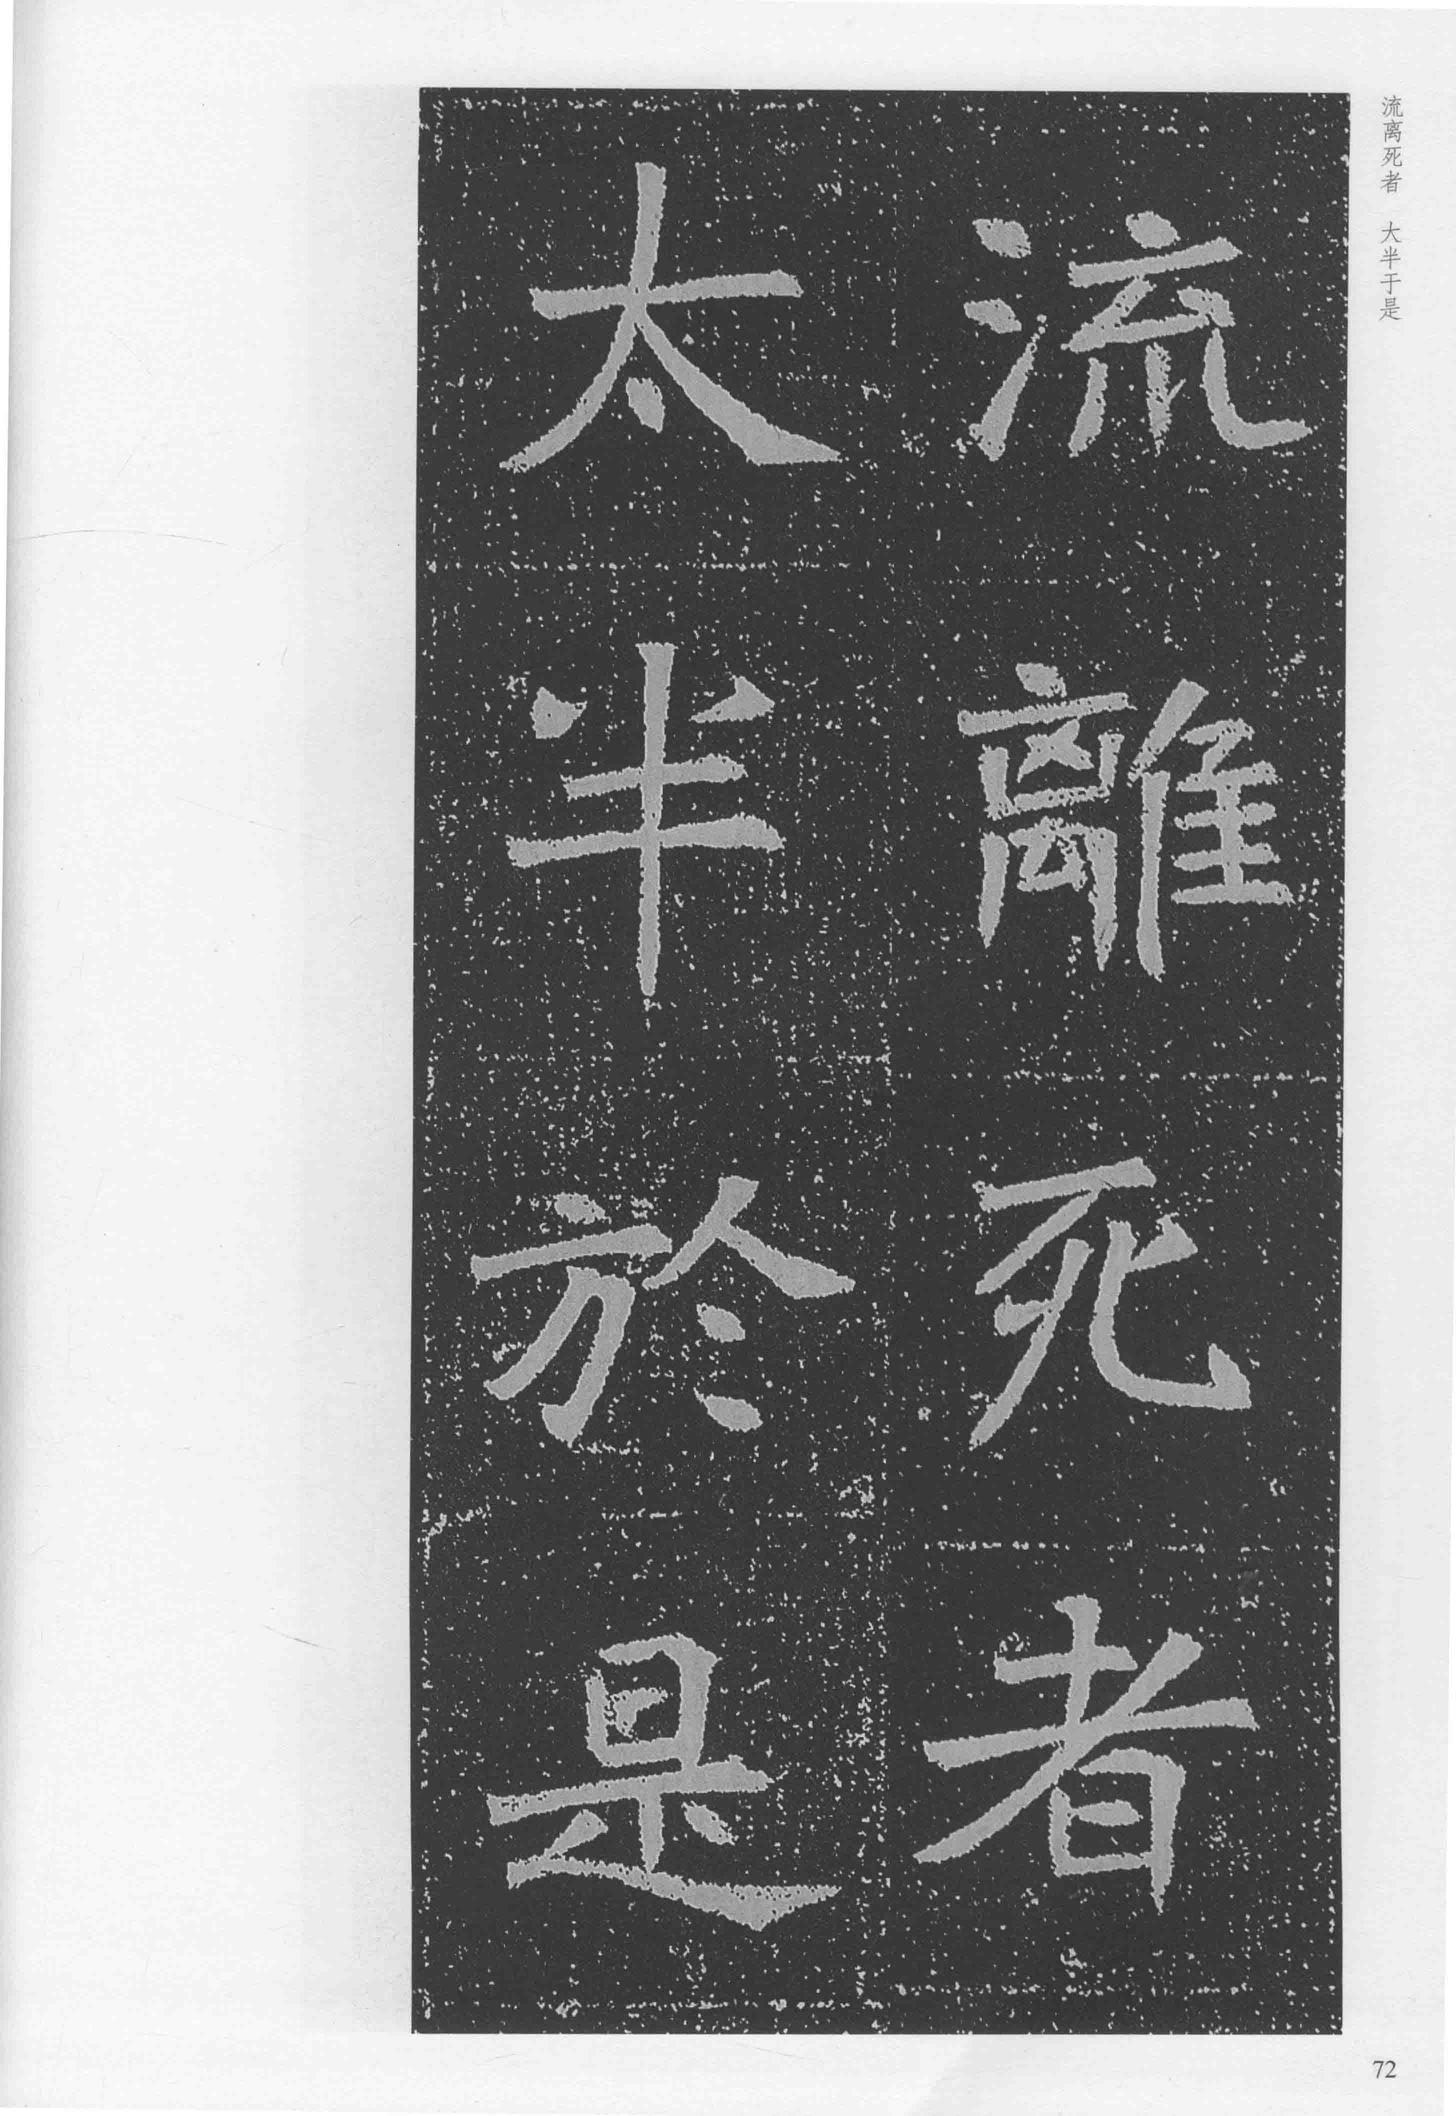 流离死者　大半于是
流離死者
太半於是
72